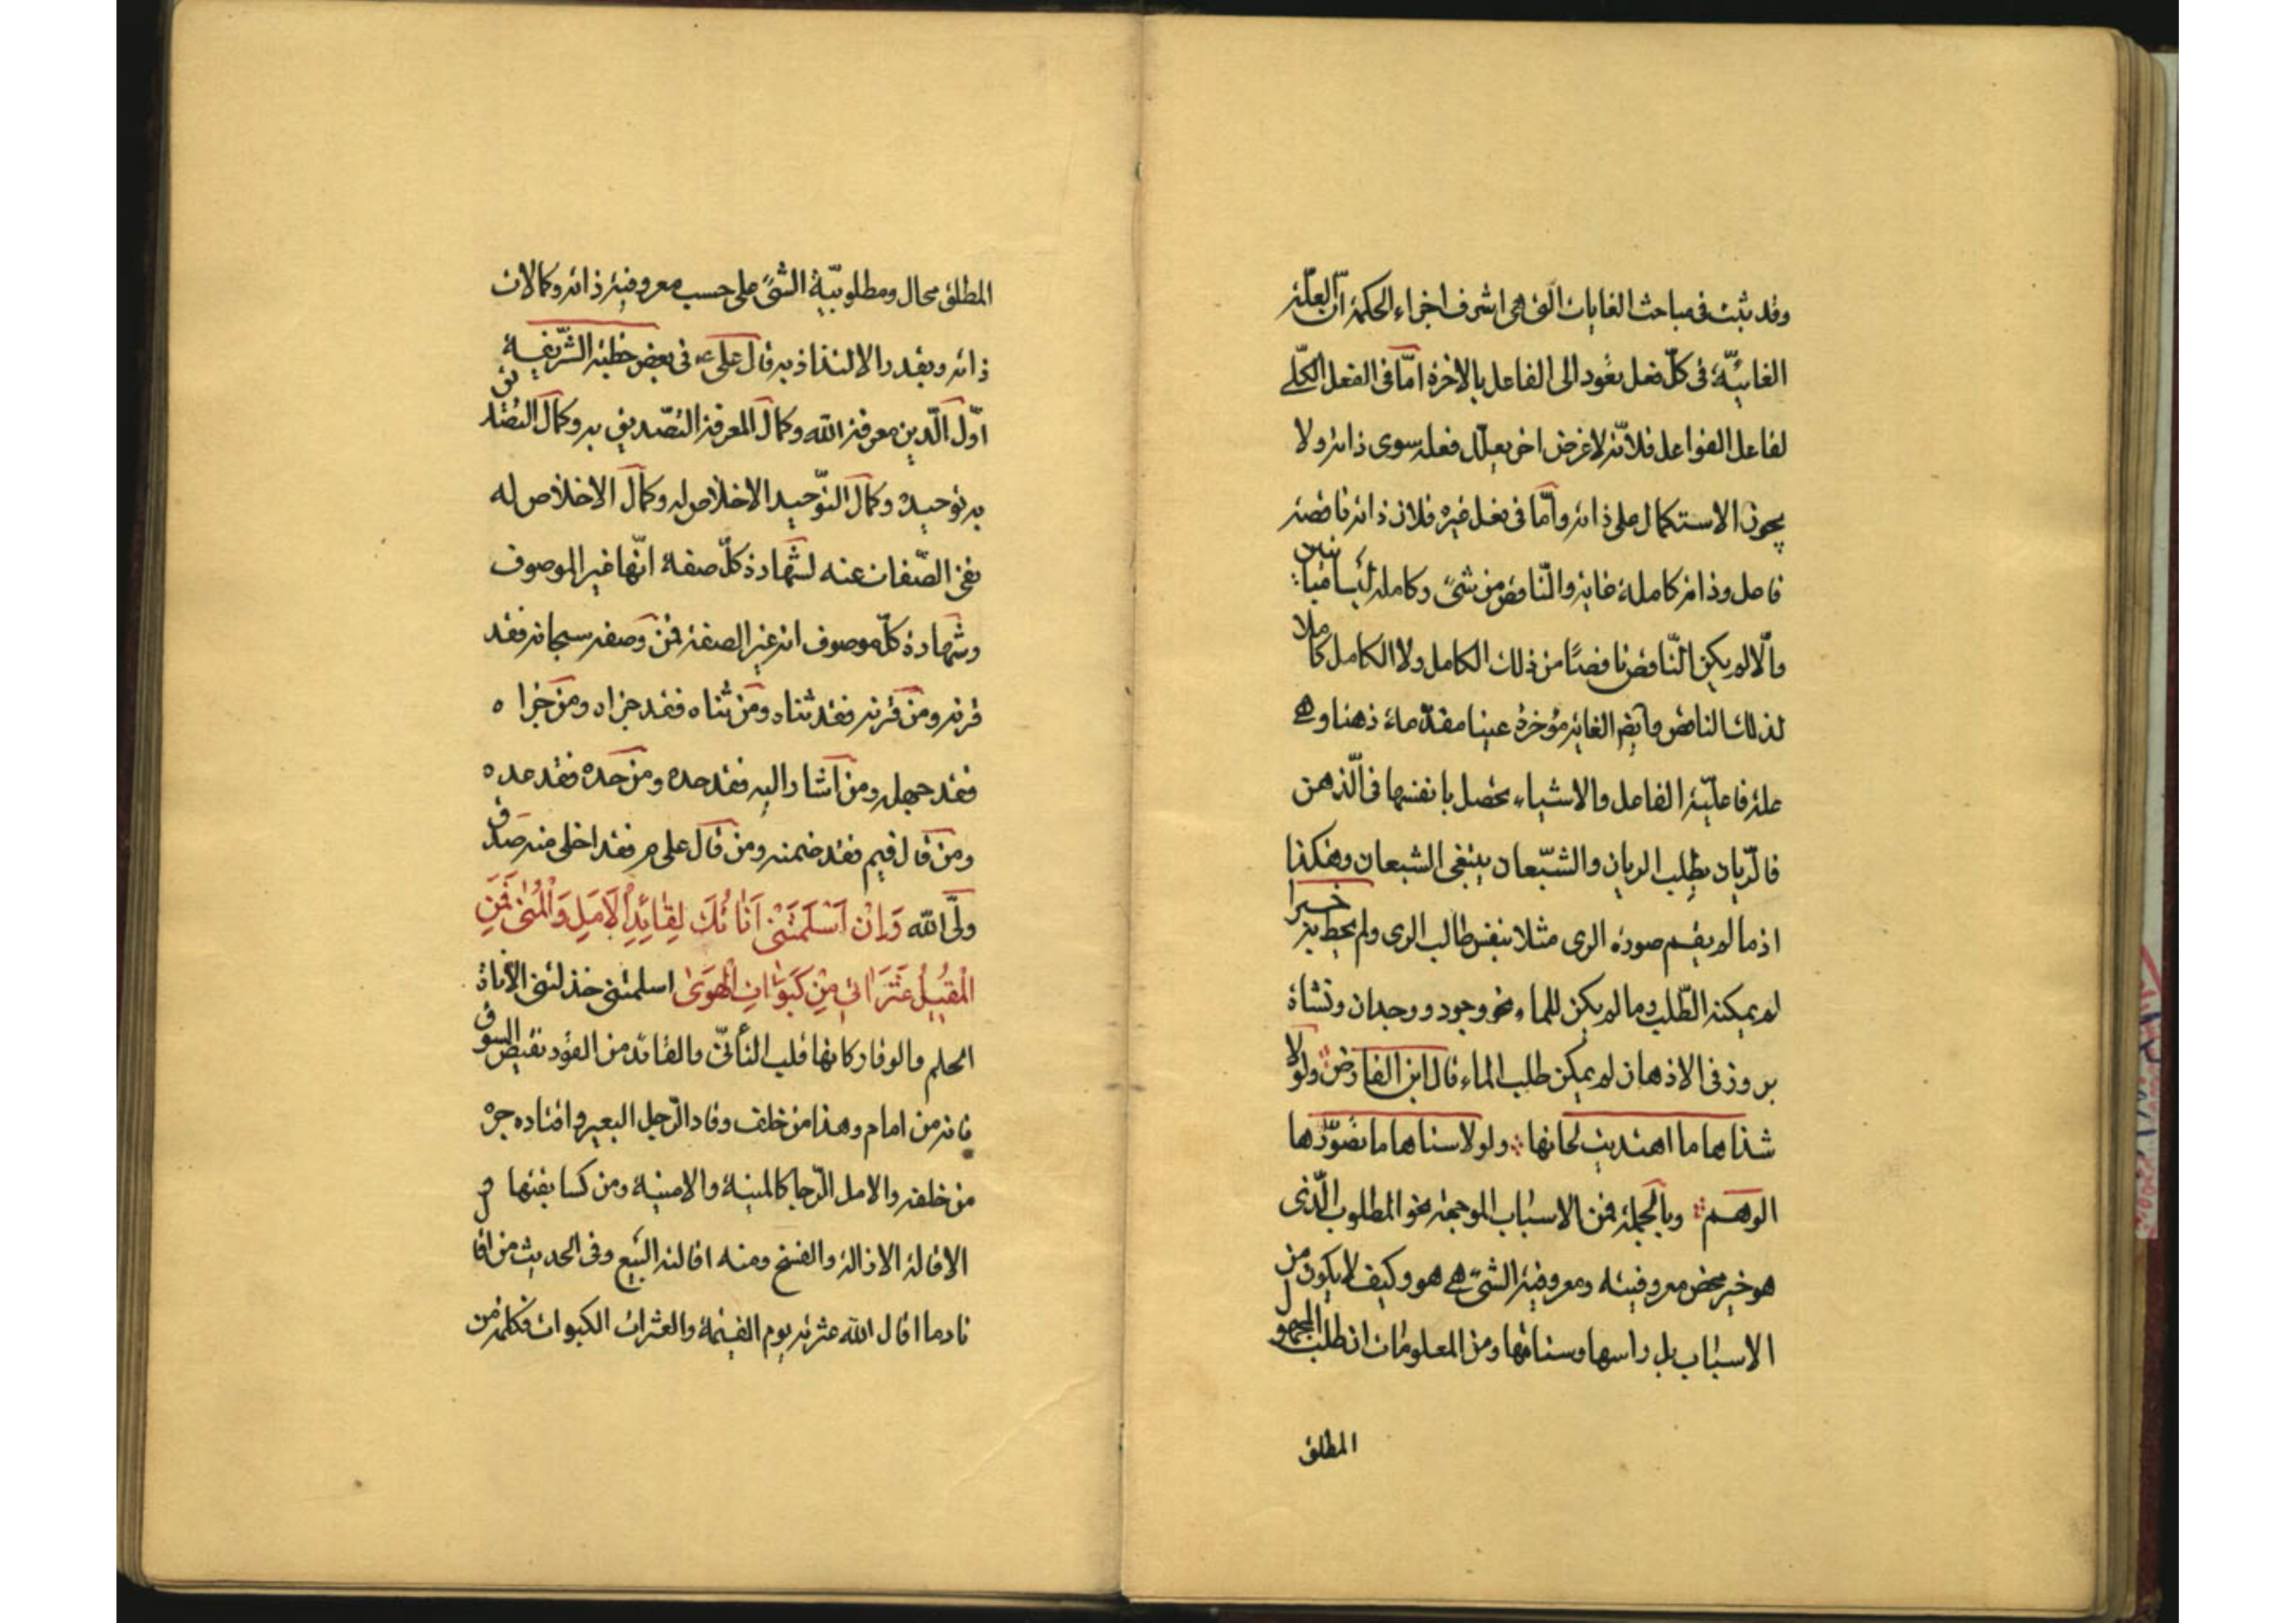 وقد ثبت فى مباحث الغايات الّتى هى اشرف اجزاء الحكمة انّ العلّة
الغائيّة فى كلّ فعل يعود الى الفاعل بالاخرة امّا فى الفعل الكلّى
لفاعل الفواعل فلانّه لا غرض اخر يعلّل فعله سوى ذاته ولا
يجوز الاستكمال على ذاته وامّا فى فعل غيره فلان ذاته ناقصة
فاعل وذاته كاملة غاية والنّاقص من شىء وكامله ليسا متباينين
والّا لم يكن النّاقص ناقصًا من ذلك الكامل ولا الكامل كاملا
لذلك الناقص وايضا الغاية مؤخرة عينا مقدّماة ذهنا وهى
علة فاعليّة الفاعل والاشياء تحصل بانفسها فى الّذهن
فالرّيان يطلب الريان والشبّعان يبتغى الشبعان وهكذا
اذ ما لم يقسم صورة الرى مثلا بنفس طالب الرى ولم يحط به خبرا
لم يمكنه الطّلب وما لم يكن للماء نحو وجود ووجدان ونشاة
بروز فى الاذهان لم يمكن طلب الماء قال ابن الفارض ولولا
شذاها ما اهتديت لحانها ولولا سناها ما تصوّرها
الوهم وبالجملة فمن الاسباب الموجهة نحو المطلوب الّذى
هو خير محض معروفيته ومعروفية الشئ هى هو وكيف لا يكون من
الاسباب بل راسها وسنامها ومن المعلومات ان طلب المجهول
المطلق
المطلق محال ومطلوبيّة الشىء على حسب معروفية ذاته وكمالات
ذاته وبقدر الالتذاذ به قال على ع فى بعض خطبه الشّريفة
اوّل الّدين معرفة الله وكمال المعرفة التصّديق به وكمال التصديق
به توحيده وكمال التوّحيد الاخلاص له وكمال الاخلاص له
نفى الصّفات عنه لشهادة كلّ صفة انّها غير الموصوف
وشهادة كلّ موصوف انه غير الصفة فمن وصفه سبحانه فقد
قرنه ومن قرنه فقد ثناه ومن ثناه فقد جزاه ومن جزاه
فقد جهله ومن اشار اليه فقد حده ومن حده فقد عده
ومن قال فيم فقد ضمنه ومن قال على م فقد اخلى منه صدق
ولىّ الله وَاِنْ اَسْلَمَتَنْى اَنَاتُكَ لِقٰائِدِ اْلاَمَلِ وَالْمُنىٰ فَمَنِ
الْمُقيٖلُ عَثَرَاتى مِنْ كَبَوٰاتِ الْهَوىٰ اسلمتنى خذلتنى الأناة
الحلم والوقار كانها قلب التأنّى والقائد من القود نقيض السوق
فانه من امام وهذا من خلف وقاد الرّجل البعير واقتاده جره
من خلفه والامل الرّجا كالمنية والامنية ومن كسا يفتها و
الاقالة الازالة والفسخ ومنه اقالة البيع وفى الحديث من اقال
نادما اقال الله عثرته يوم القيمة والعثرات الكبوات فكلمة من